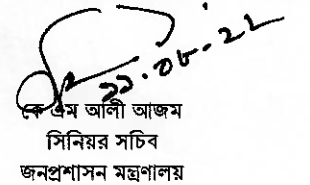 ২১.০৮.২২
কে এম আলী আজম
সিনিয়র সচিব
জনপ্রশাসন মন্ত্রণালয়